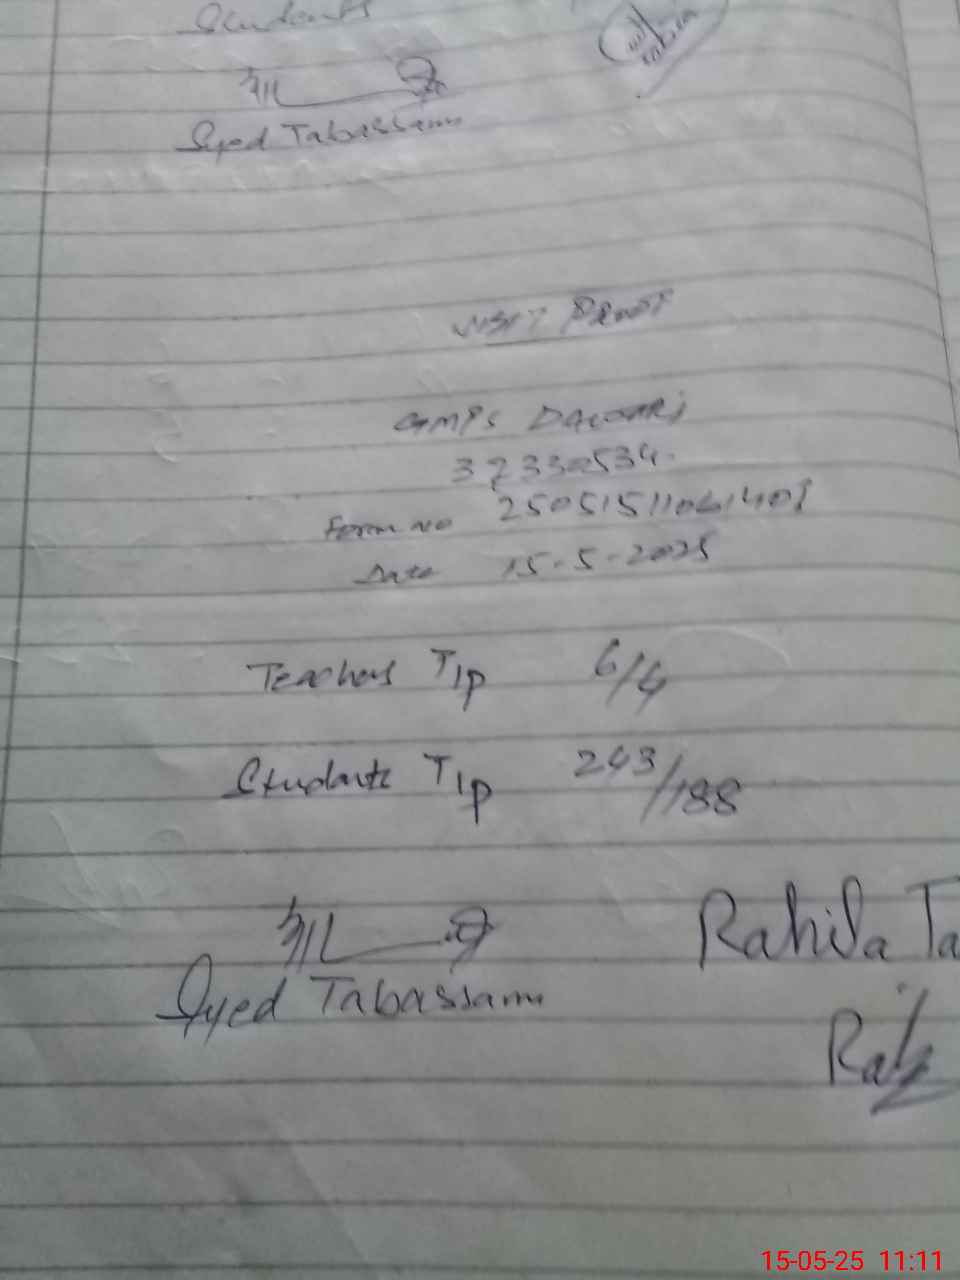 Students
Syed Tabassam
VISIT PROOF
GMPS
37330534
Form No 250515110614
Date 15-5-2025
Teachers T/P 6/4
Students T/P 243/188
Syed Tabassam
Rahila Ta
15-05-25 11:11